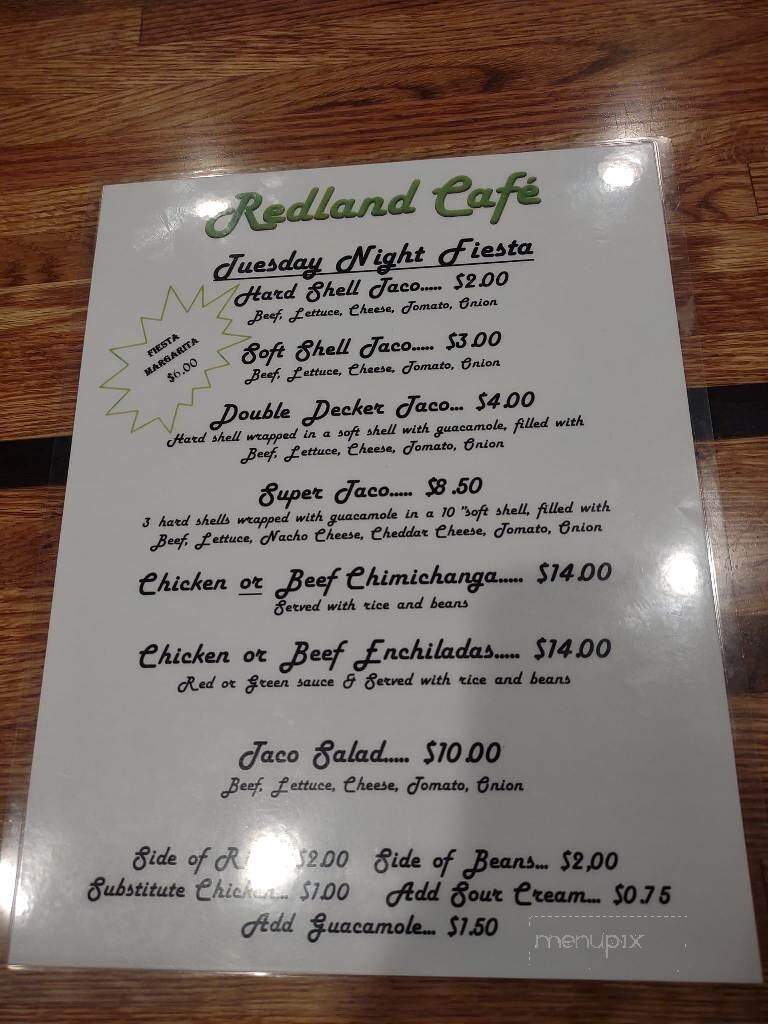 Redland Café
Tuesday Night Fiesta
Hard Shell Taco..... $2.00
Beef, Lettuce, Cheese, Tomato, Onion
FIESTA
MARGARITA
$6.00
Soft Shell Taco..... $3.00
Beef, Lettuce, Cheese, Tomato, Onion
Double Decker Taco... $4.00
Hard shell wrapped in a soft shell with guacamole, filled with
Beef, Lettuce, Cheese, Tomato, Onion
Super Taco..... $8.50
3 hard shells wrapped with guacamole in a 10 "soft shell, filled with
Beef, Lettuce, Nacho Cheese, Cheddar Cheese, Tomato, Onion
Chicken or Beef Chimichanga..... $14.00
Served with rice and beans
Chicken or Beef Enchiladas..... $14.00
Red or Green sauce & Served with rice and beans
Taco Salad..... $10.00
Beef, Lettuce, Cheese, Tomato, Onion
Side of $2.00 Side of Beans... $2,00
Substitute Chicken... $1.00 Add Sour Cream... $0.75
Add Guacamole... $1.50
menupix